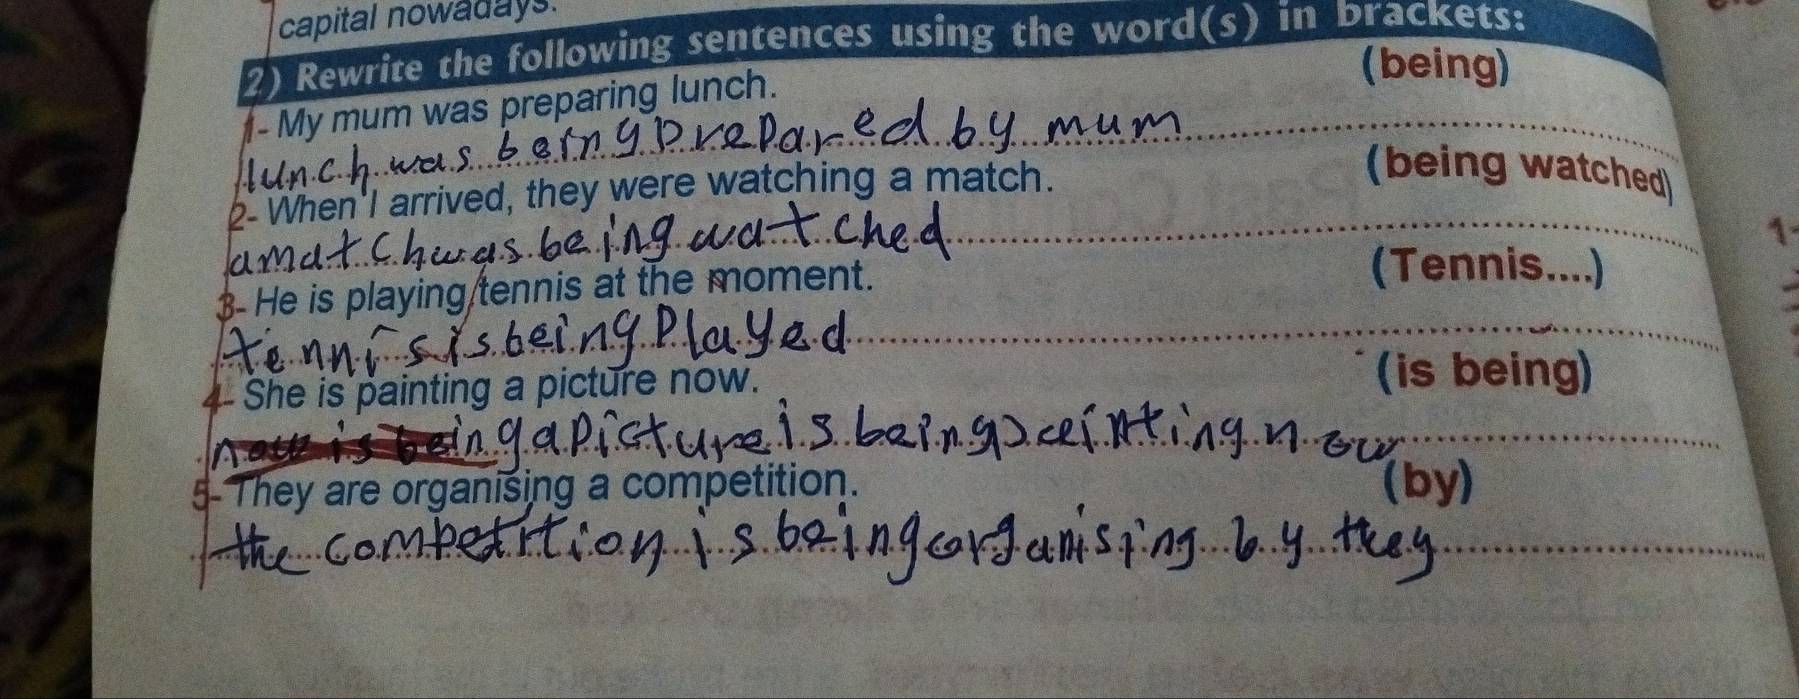 capital nowadays.
2) Rewrite the following sentences using the word(s) in brackets:
1- My mum was preparing lunch. (being)
lunch was being prepared by mum
2- When I arrived, they were watching a match. (being watched)
a match was being watched
3- He is playing tennis at the moment. (Tennis....)
tennis is being played
4- She is painting a picture now. (is being)
now is being a picture is being painting now
5- They are organising a competition. (by)
the competition is being organising by they
1-